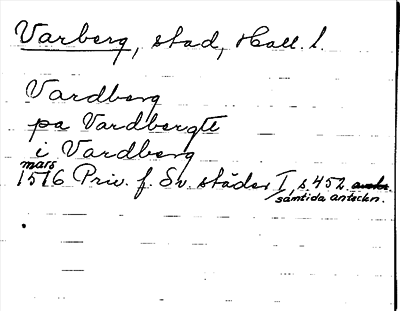 Varberg, stad, Hall. l.
Vardberg
pa Vardbergh
i Vardberg
mars
1516 Priv. f. Sv. städer I, s. 452
samtida anteckn.